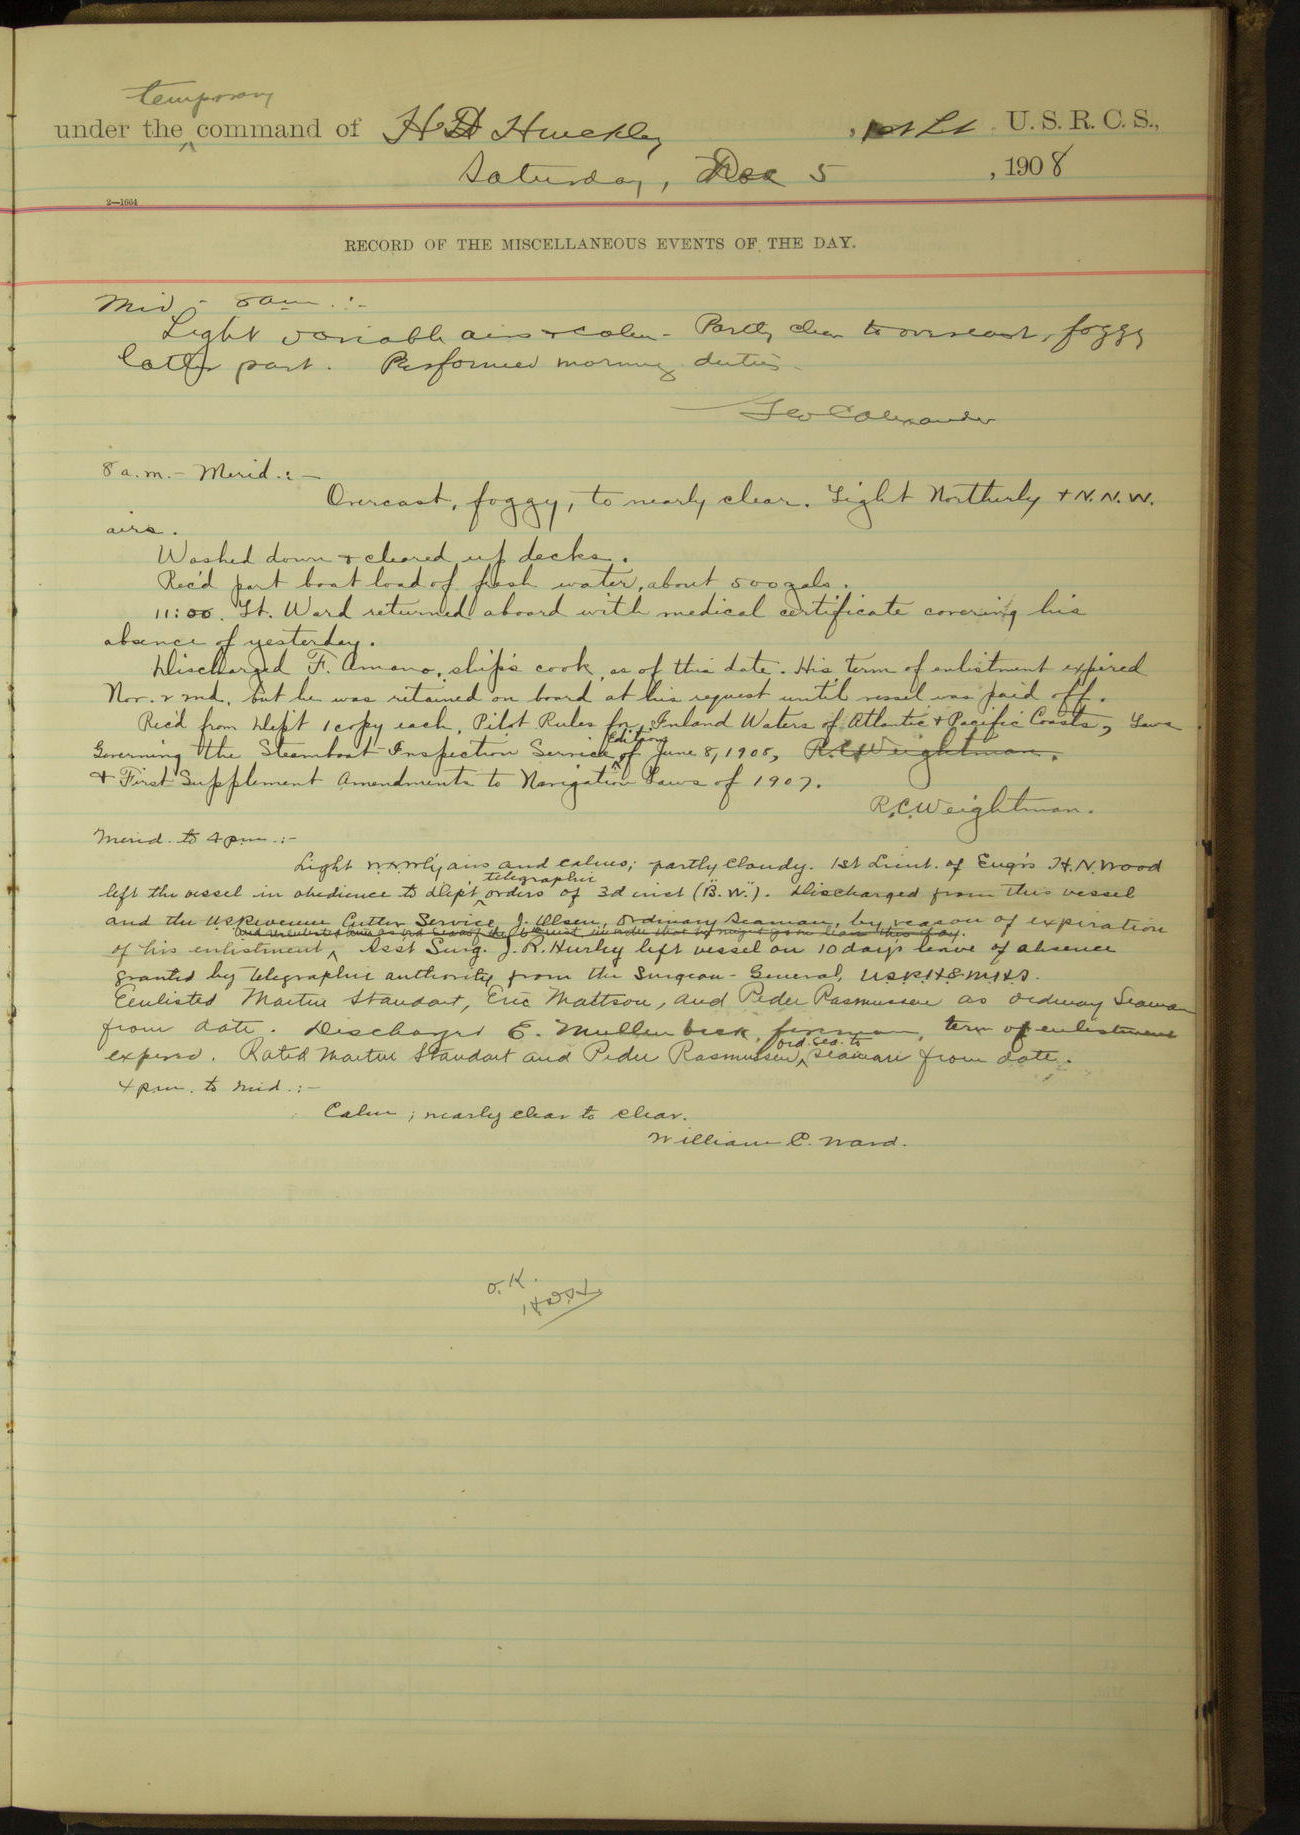 temporary
under the command of H D Hinckley, 1st Lt. U. S. R. C. S.,
Saturday, Dec 5, 1908
2—1664
RECORD OF THE MISCELLANEOUS EVENTS OF THE DAY.
Mid - 8 am. :-
Light variable airs & calm - Partly clear to overcast, foggy
latter part. Performed morning duties.
Geo C Alexander
8 a.m. - Merid. :-
Overcast, foggy, to nearly clear. Light Northerly & N.N.W.
airs.
Washed down & cleared up decks.
Rec'd part boat load of fresh water, about 500 gals.
11:00. Lt. Ward returned aboard with medical certificate covering his
absence of yesterday.
Discharged F. Amano, ship's cook, as of this date. His term of enlistment expired
Nov. 22nd, but he was retained on board at his request until vessel was paid off.
Rec'd from Dep't 1 copy each, Pilot Rules for Inland Waters of Atlantic & Pacific Coasts, Laws
Edition
Governing the Steamboat-Inspection Service of June 8, 1908, R.C. Weightman.
& First Supplement Amendments to Navigation Laws of 1907.
R.C. Weightman.
Merid. to 4 pm. :-
Light airs and calms; partly cloudy. 1st Lieut. of Eng'rs H.N. Wood
telegraphic
left the vessel in obedience to Dep't orders of 3d inst ("B.W."). Discharged from this vessel
and the U.S. Revenue Cutter Service, J. Olsen, Ordinary Seaman, by reason of expiration
of his enlistment. Asst Surg. J. R. Hurley left vessel on 10 days leave of absence
granted by telegraphic authority from the Surgeon-General, U.S.P.H. & M.H.S.
Eenlisted Martin Standart, Eric Mattson, and Peder Rasmussen as ordinary Seaman
from date. Discharged E. Mullenbeck, fireman, term of enlistment
ord. sea. to
expired. Rated Martin Standart and Peder Rasmussen, seaman from date.
4 pm. to mid. :-
Calm; nearly clear to clear.
William C. Ward.
O.K.
H.D.H.